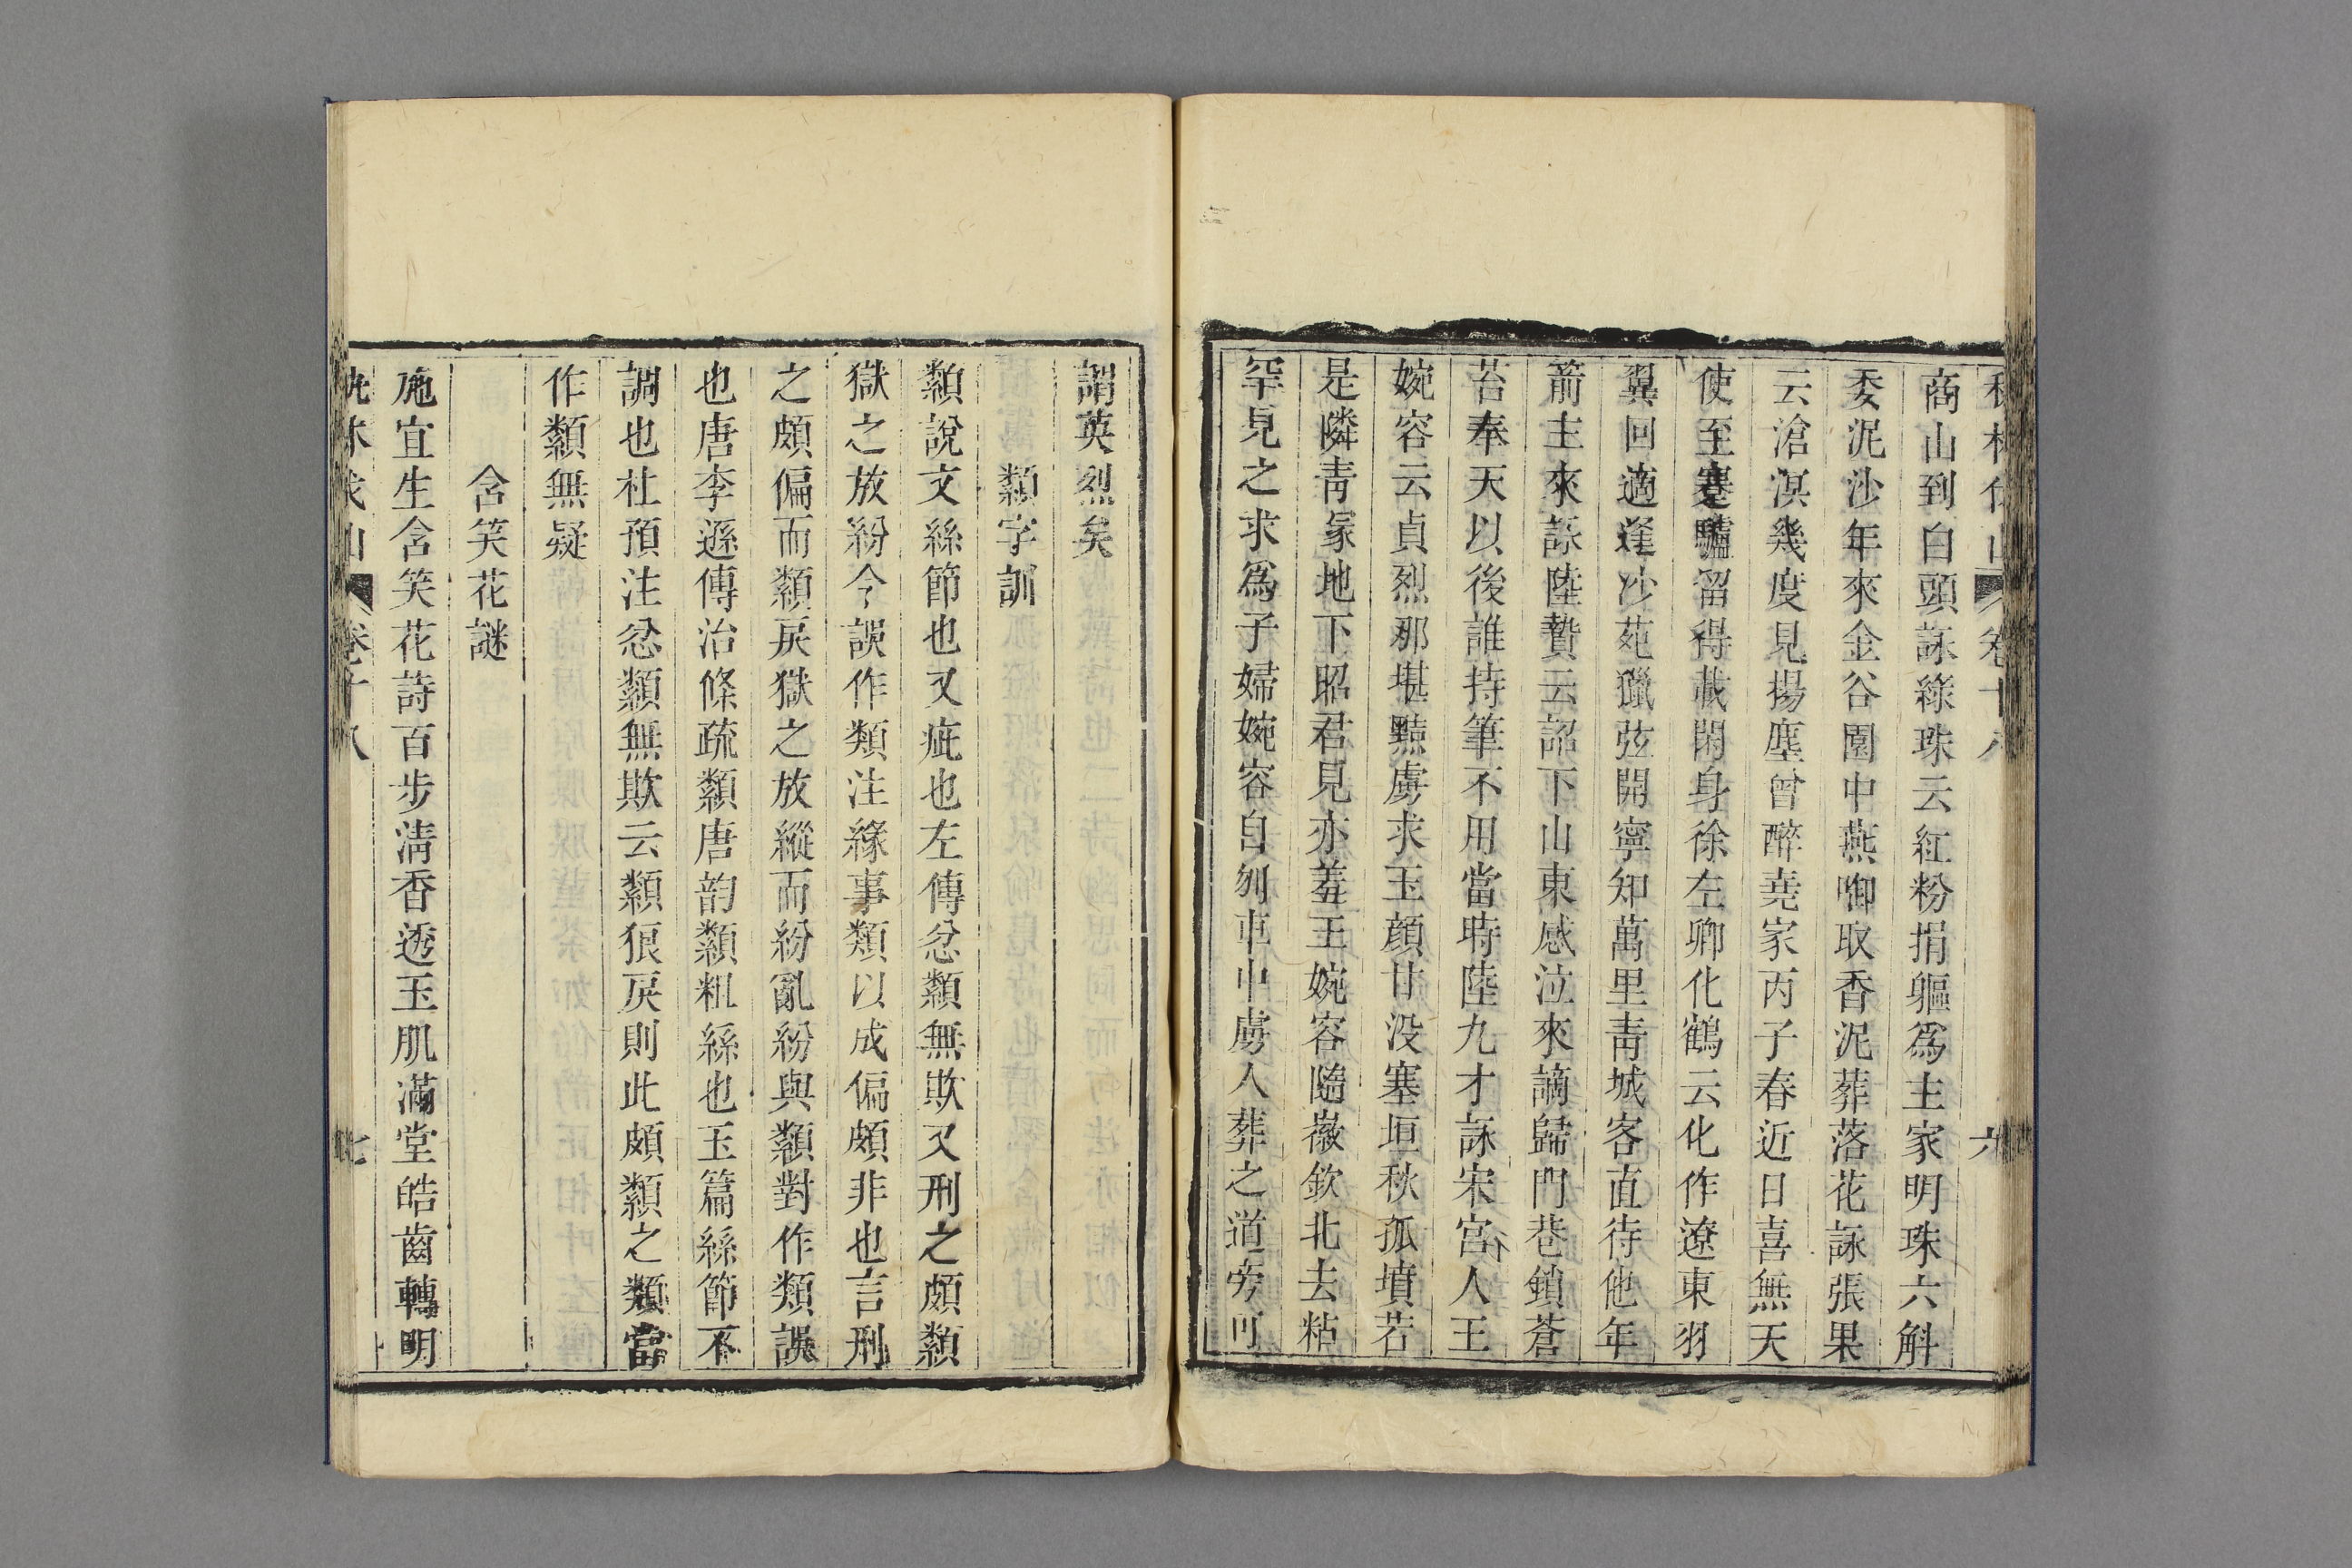 商山到白頭詠綠珠云紅粉捐軀爲主家明珠六斛
委泥沙年來金谷園中燕啣取香泥葬落花詠張果
云滄溟幾度見揚塵曾醉堯家丙子春近日喜無天
使至蹇驢留得載閑身徐左卿化鶴云化作遼東羽
翼回適逢沙苑獵弦開寧知萬里靑城客直待他年
箭主來詠陸贄云詔下山東感泣來謫歸門巷鎖蒼
苔奉天以後誰持筆不用當時陸九才詠宋宮人王
婉容云貞烈那堪黠虜求玉顔甘没塞垣秋孤墳若
是隣靑冢地下昭君見亦羞王婉容隨徽欽北去粘
罕見之求爲子婦婉容自刎車中虜人葬之道旁可
謂英烈矣
纇字訓
纇說文絲節也又疵也左傳忿纇無欺又刑之頗纇
獄之放紛今誤作類注緣事類以成偏頗非也言刑
之頗偏而纇戾獄之放縱而紛亂紛與纇對作類誤
也唐李遜傳治條疏纇唐韵纇粗絲也玉篇絲節不
調也杜預注忿纇無欺云纇很戾則此頗纇之類當
作纇無疑
含笑花謎
施宜生含笑花詩百步淸香透玉肌滿堂皓齒轉明